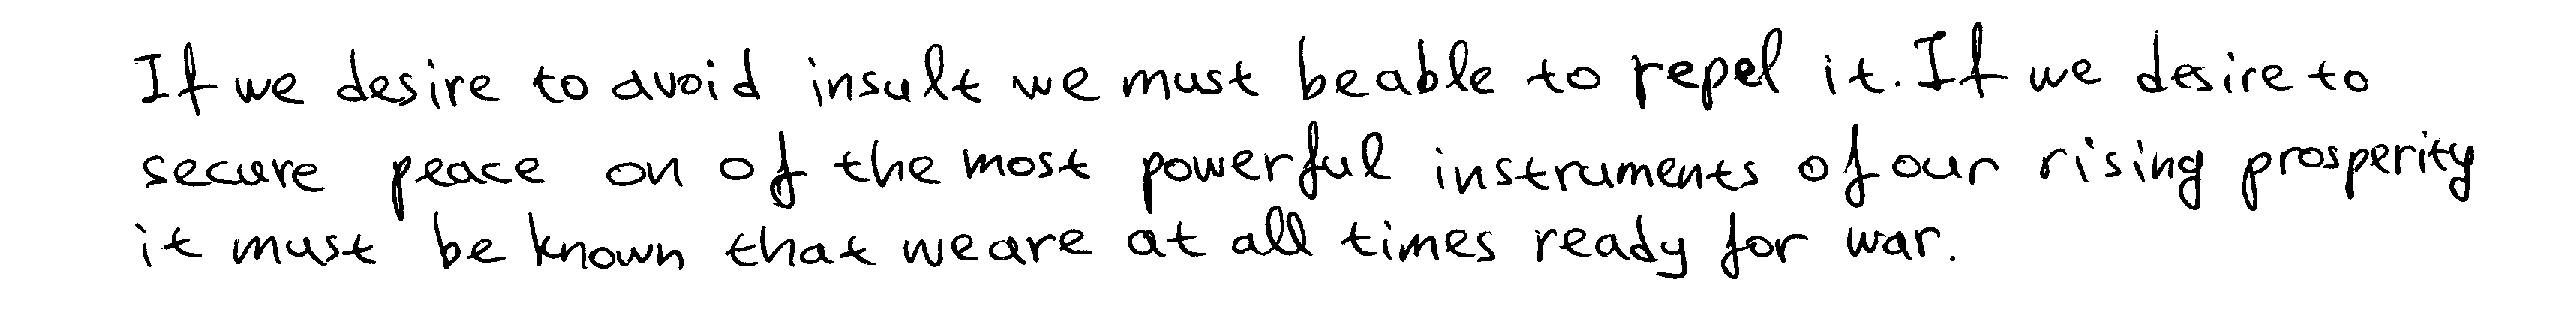 If we desire to avoid insult we must be able to repel it. If we desire to
secure peace on of the most powerful instruments of our rising prosperity
it must be known that we are at all times ready for war.